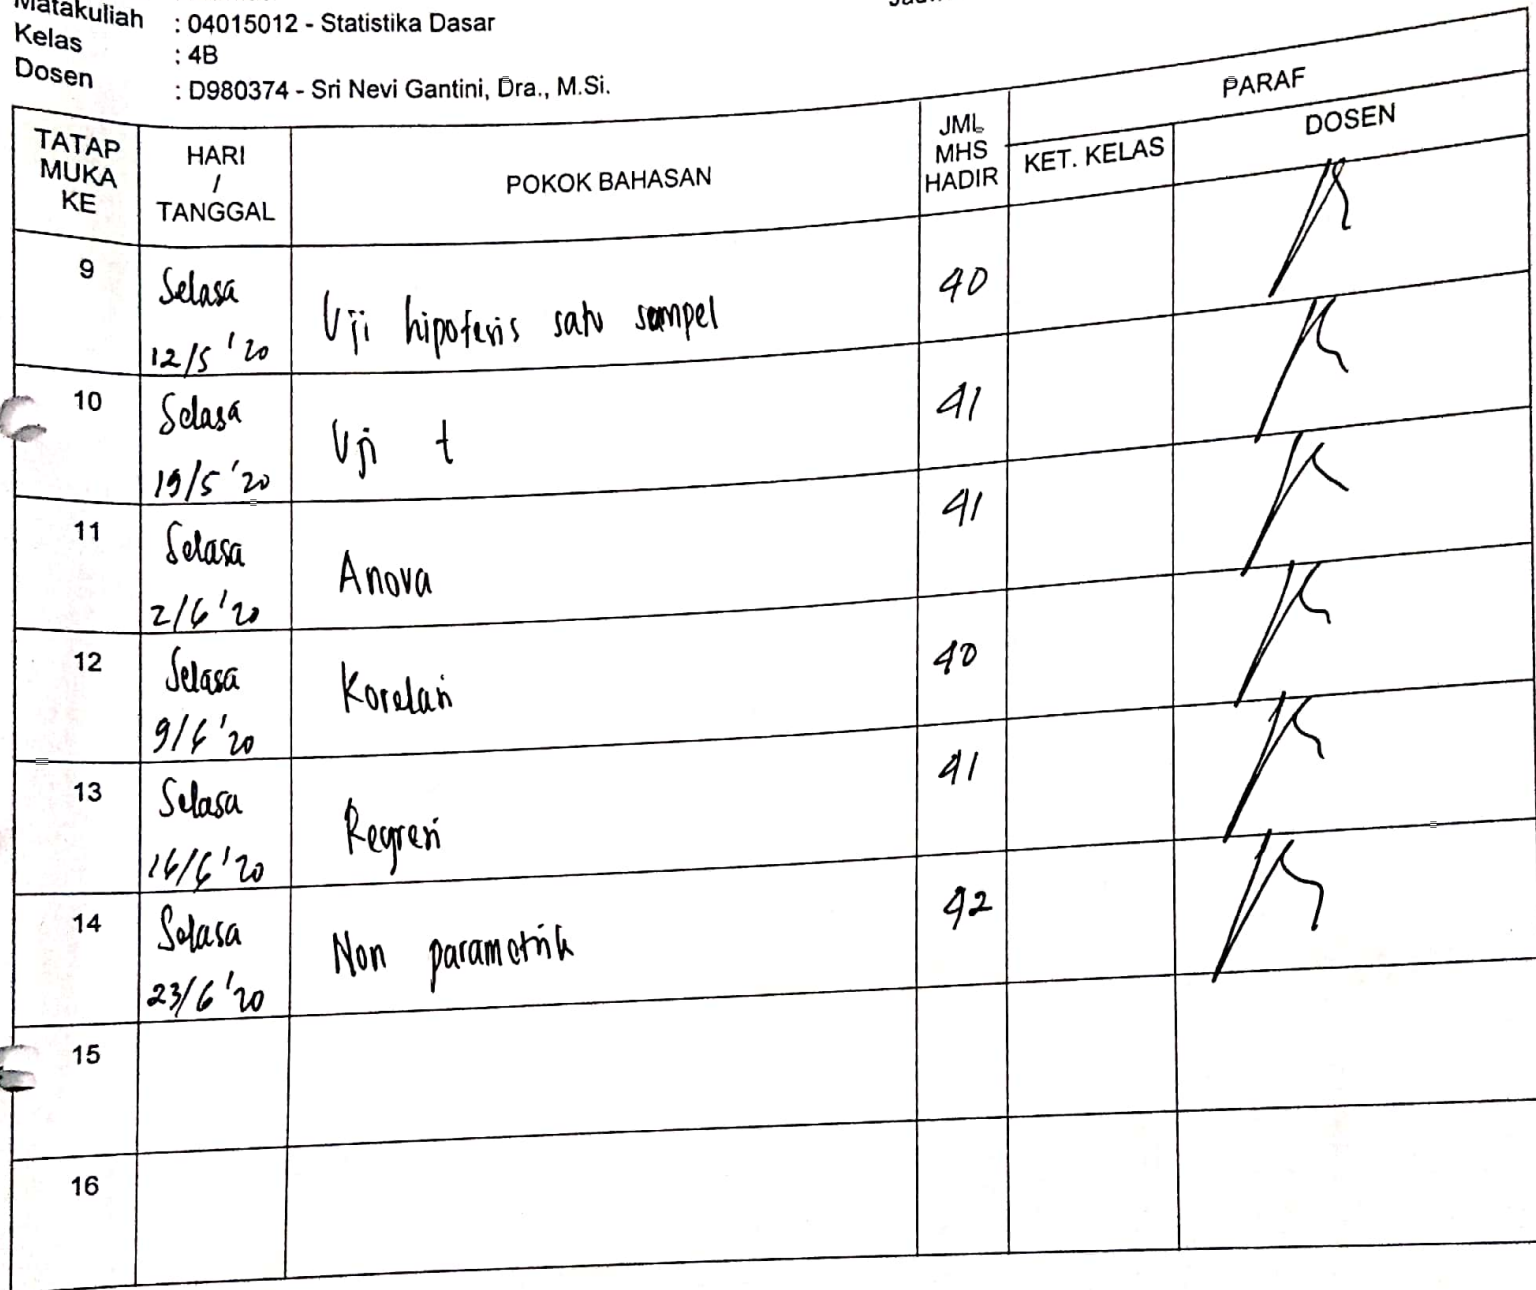 Matakuliah : 04015012 - Statistika Dasar
Kelas : 4B
Dosen : D980374 - Sri Nevi Gantini, Dra., M.Si.
TATAP MUKA KE
HARI / TANGGAL
POKOK BAHASAN
JML MHS HADIR
PARAF
KET. KELAS
DOSEN
9
Selasa
12/5 '20
Uji hipotesis satu sampel
40
10
Selasa
19/5 '20
Uji t
41
11
Selasa
2/6 '20
Anova
41
12
Selasa
9/6 '20
Korelasi
40
13
Selasa
16/6 '20
Regresi
41
14
Selasa
23/6 '20
Non parametrik
42
15
16